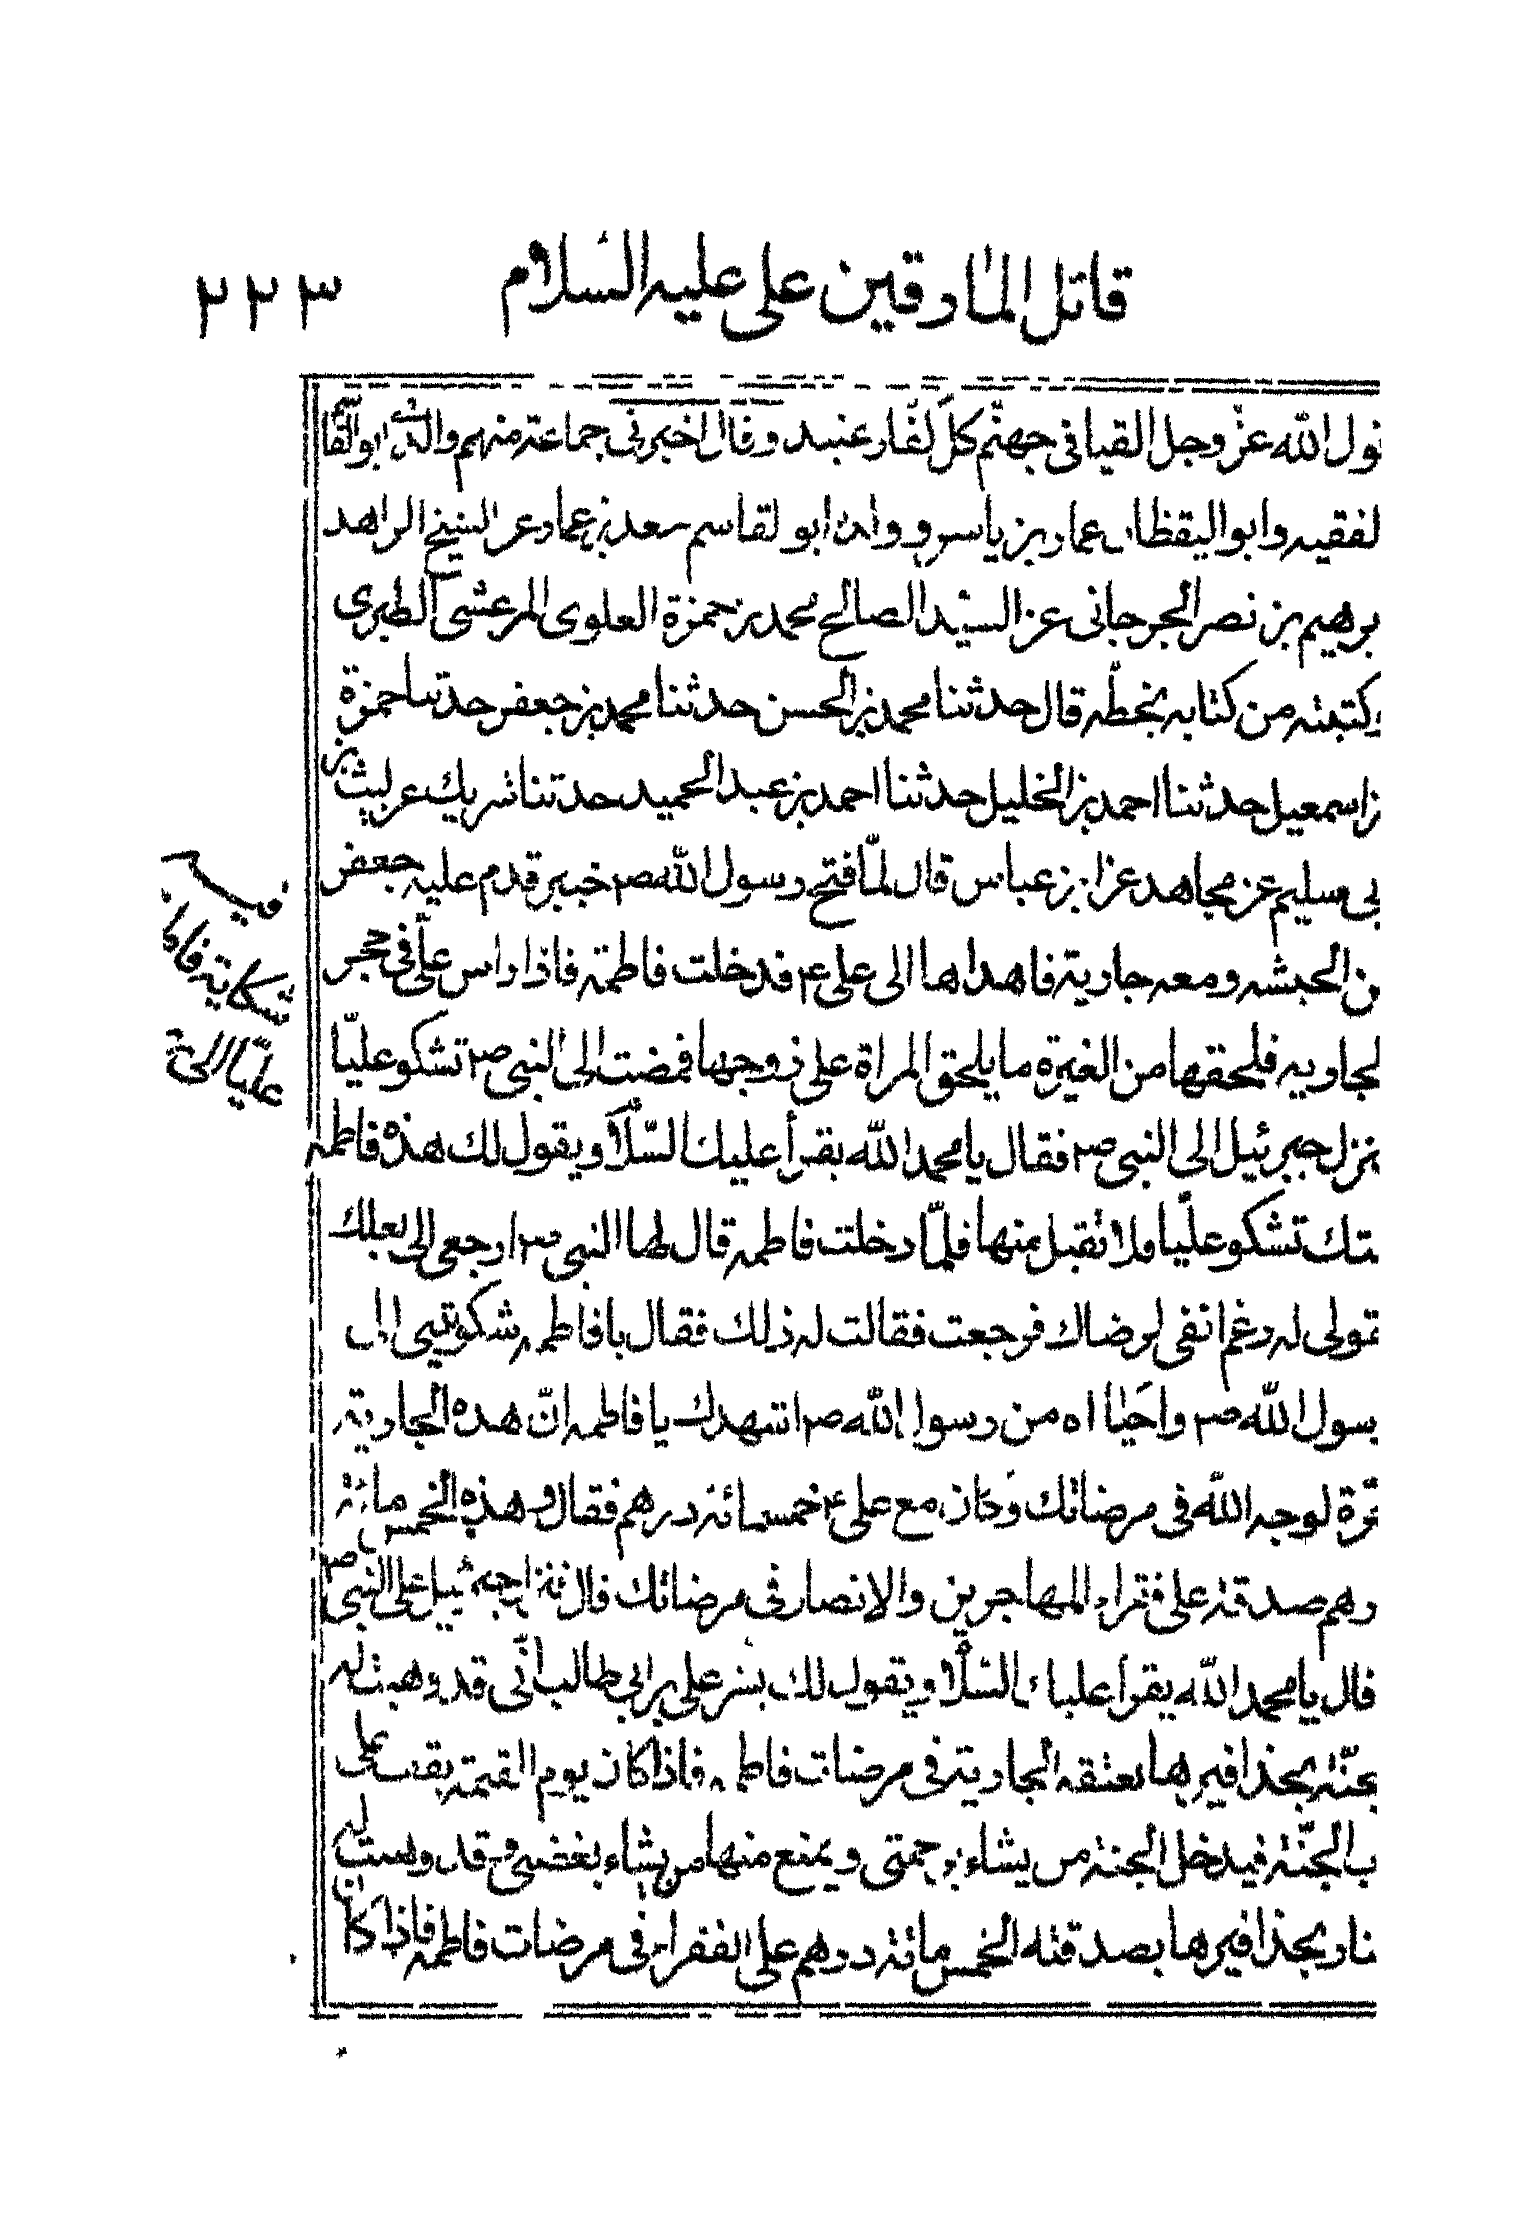 قاتل المارقين على عليه السلام ٢٢٣
قول الله عز وجل القيا فى جهنم كل كفار عنيد وقال اخبرنى جماعة منهم والدى ابو القا
لفقيه وابو اليقظان عمار بن ياسر وولده ابو لقاسم سعد بن عمار عن الشيخ الزاهد
برهيم بن نصر الجرجانى عن السيد الصالح محمد بن حمزة العلوى المرعشى الطبرى
وكتبته من كتابه بخطه قال حدثنا محمد بن الحسن حدثنا محمد بن جعفر حدثنا حمزة
بن اسمعيل حدثنا احمد بن الخليل حدثنا احمد بن عبد الحميد حدثنا شريك عن ليث بن
بى سليم عن مجاهد عن ابن عباس قال لما فتح رسول الله ص خيبر قدم عليه جعفر
من الحبشه ومعه جارية فاهداها الى على ع فدخلت فاطمة فاذا راس على فى حجر
لجاريه فلحقها من الغيرة ما يلحق المراة على زوجها فمضت الى النبى ص تشكو عليا
فنزل جبرئيل الى النبى ص فقال يا محمد الله يقرأ عليك السلام ويقول لك هذه فاطمه
بنتك تشكو عليا فلا تقبل منها فلما دخلت فاطمه قال لها النبى ص ارجعى الى بعلك
قولى له رغم انفى لرضاك فرجعت فقالت له ذلك فقال يا فاطمه شكوتنى الى
رسول الله ص واحياا اه من رسول الله ص اشهدك يا فاطمه ان هذه الجارية
حرة لوجه الله فى مرضاتك وكان مع على ع خمسمائة درهم فقال وهذه الخمس مائة
درهم صدقة على فقراء المهاجرين والانصار فى مرضاتك قال فنزل جبرئيل على النبى ص
فقال يا محمد الله يقرأ عليك السلام ويقول لك بشر على بن ابى طالب انى قد وهبت له
الجنة بحذافيرها بعتقه الجارية فى مرضات فاطمه فاذا كان يوم القيمة يقف على
باب الجنة فيدخل الجنة من يشاء برحمتى ويمنع منها من يشاء بغضبى وقد وهبت له
النار بحذافيرها بصدقته الخمس مائة درهم على الفقراء فى مرضات فاطمه فاذا كان
فى
شكاية فا
عليا الى